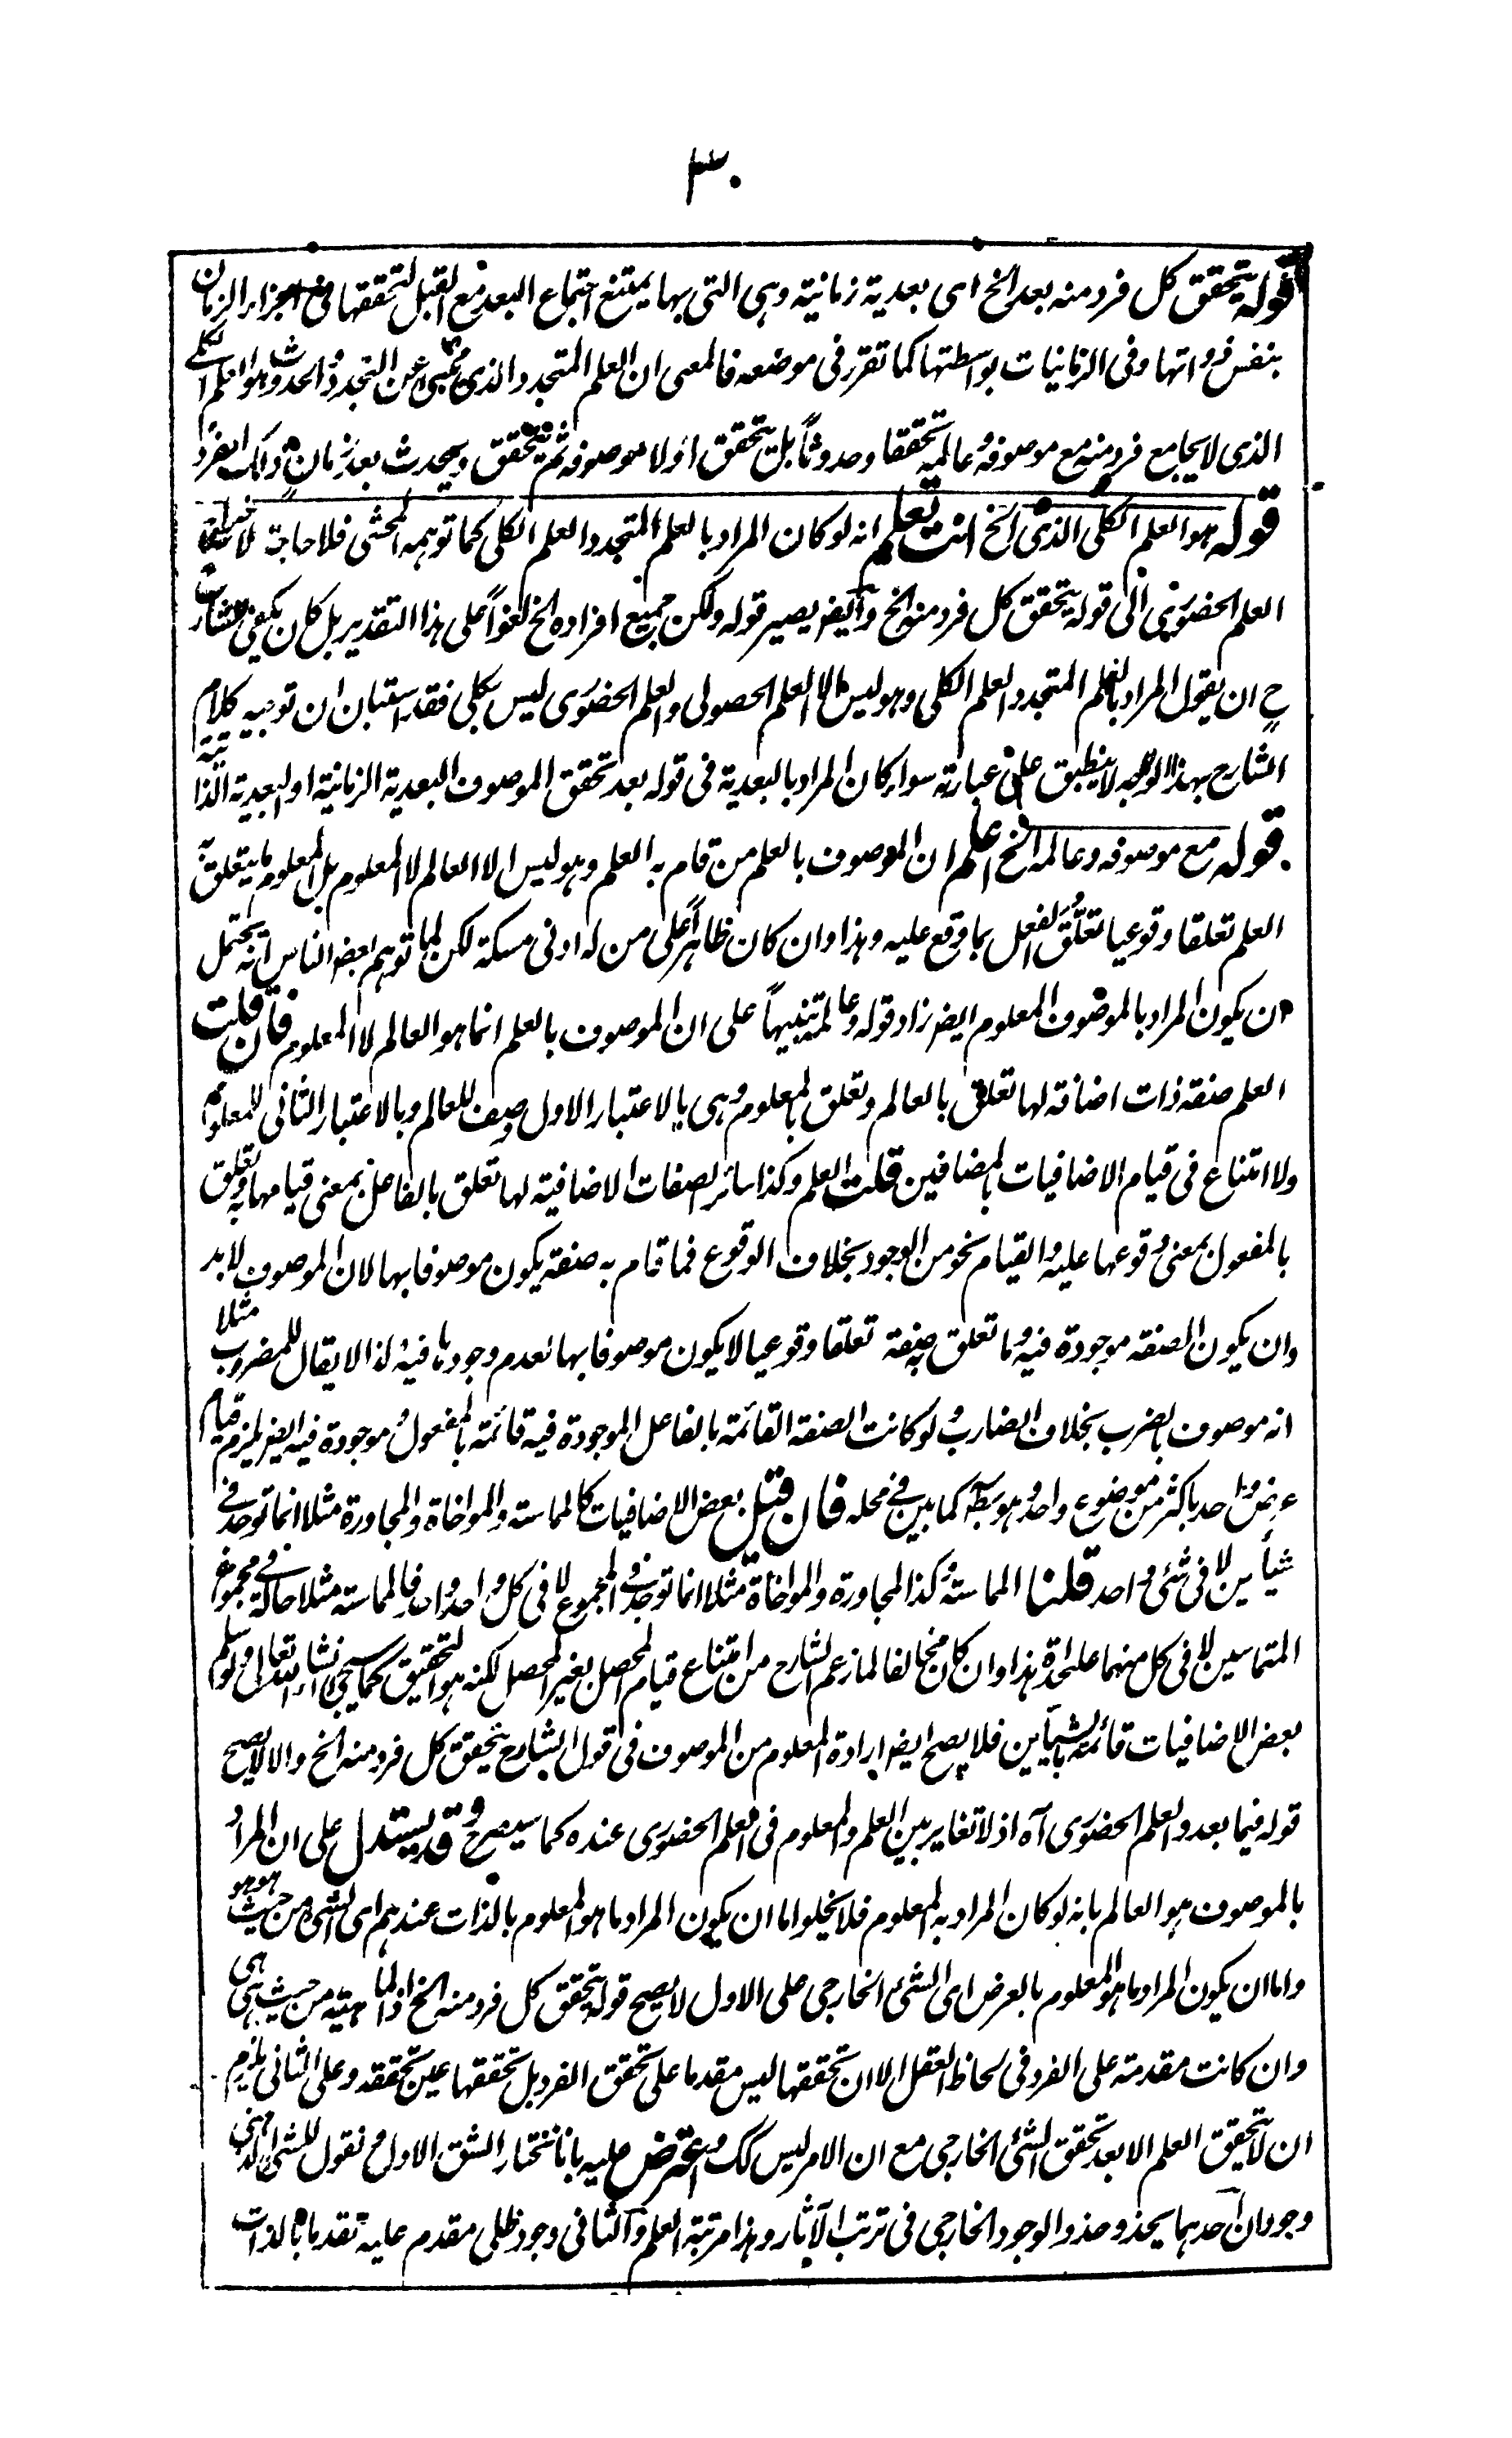 ٣٠
قوله يتحقق كل فرد منه بعد الخ اى بعدية زمانية وهى التى بها يمتنع اجتماع البعد مع القبل لتحققها فى اجزاء الزمان
بنفس ذواتها وفى الزمانيات بواسطتها كما تقرر فى موضعه فالمعنى ان العلم المتجدد الذى ينبئ عن التجدد والحدوث هو العلم الكلى
الذى لا يجامع فرد منه مع موصوفه وعالمه تحققا وحدوثاً بل يتحقق اولا موصوفه ثم يتحقق ويحدث بعد زمان ذلك الفرد
قوله هو العلم الكلى الذى الخ انت تعلم انه لو كان المراد بالعلم المتجدد العلم الكلى كما توهمه المحشى فلا حاجة لاخراج
العلم الحضورى الى قوله يتحقق كل فرد منه الخ وايضا يصير قوله ولكن جميع افراده الخ لغواً على هذا التقدير بل كان يكفى للشارح
ح ان يقول المراد بالعلم المتجدد العلم الكلى وهو ليس الا العلم الحصولى والعلم الحضورى ليس بكلى فقد استبان ان توجيه كلام
الشارح بهذا الوجه لا ينطبق على عبارته سواء كان المراد بالبعدية فى قوله بعد تحقق الموصوف البعدية الزمانية او البعدية الذاتية
قوله مع موصوفه وعالمه الخ اعلم ان الموصوف بالعلم من قام به العلم وهو ليس الا العالم لا المعلوم بل المعلوم ما يتعلق به
العلم تعلقا وقوعيا تعلُّقَ الفعل بما وقع عليه وهذا وان كان ظاهراً على من له ادنى مسكة لكن لما توهم بعض الناس انه يحتمل
ان يكون المراد بالموصوف المعلوم ايضا زاد قوله وعالمه تنبيهاً على ان الموصوف بالعلم انما هو العالم لا المعلوم فان قلت
العلم صفة ذات اضافة لها تعلق بالعالم وتعلق بالمعلوم وهى بالاعتبار الاول وصف للعالم وبالاعتبار الثانى للمعلوم
ولا امتناع فى قيام الاضافيات بالمضافين قلت العلم وكذا سائر الصفات الاضافية لها تعلق بالفاعل بمعنى قيامها به وتعلق
بالمفعول بمعنى وقوعها عليه والقيام نحو من الوجود بخلاف الوقوع فما قام به صفة يكون موصوفا بها لان الموصوف لا بد
وان يكون الصفة موجودة فيه وما تعلق به صفة تعلقا وقوعيا لا يكون موصوفا بها لعدم وجودها فيه لذا لا يقال للمضروب مثلا
انه موصوف بالضرب بخلاف الضارب ولو كانت الصفة القائمة بالفاعل الموجودة فيه قائمة بالمفعول وموجودة فيه ايضا يلزم قيام
عرض واحد باكثر من موضوع واحد وهو بط كما بين فى محله فان قيل بعض الاضافيات كالمماسة والمواخاة والمجاورة مثلا انما توجد فى
شيأين لا فى شئ واحد قلنا المماسة وكذا المجاورة والمواخاة مثلا انما توجد فى المجموع لا فى كل واحد واحد فالمماسة مثلا حالة فى مجموع
المتماسين لا فى كل منهما علحدة هذا وان كان مخالفا لما زعم الشارح من امتناع قيام المحصل بغير المحصل لكنه هو التحقيق كما سيجئ انشاء الله تعالى ولو سلم
بعض الاضافيات قائمة بالشيأين فلا يصح ايضا ارادة المعلوم من الموصوف فى قول الشارح يتحقق كل فرد منه الخ والا لا يصح
قوله فيما بعد والعلم الحضورى آه اذ لا تغاير بين العلم والمعلوم فى العلم الحضورى عنده كما سيصرح وقد يستدل على ان المراد
بالموصوف هو العالم بانه لو كان المراد به المعلوم فلا يخلوا ما ان يكون المراد ما هو المعلوم بالذات عندهم اى الشئ من حيث هو هو
واما ان يكون المراد ما هو المعلوم بالعرض اى الشئ الخارجى على الاول لا يصح قوله يتحقق كل فرد منه الخ اذ الماهية من حيث هى هى
وان كانت مقدمة على الفرد فى لحاظ العقل الا ان تحققها ليس مقدما على تحقق الفرد بل تحققها عين تحققه وعلى الثانى يلزم
ان لا يتحقق العلم الا بعد تحقق الشئ الخارجى مع ان الامر ليس كك واعترض عليه بانا نختار الشق الاول ونقول للشئ الذهنى
وجودان احدهما يحذو حذو الوجود الخارجى فى ترتب الآثار وهذا مرتبة العلم والثانى وجود ظلى مقدم عليه تقدما بالذات